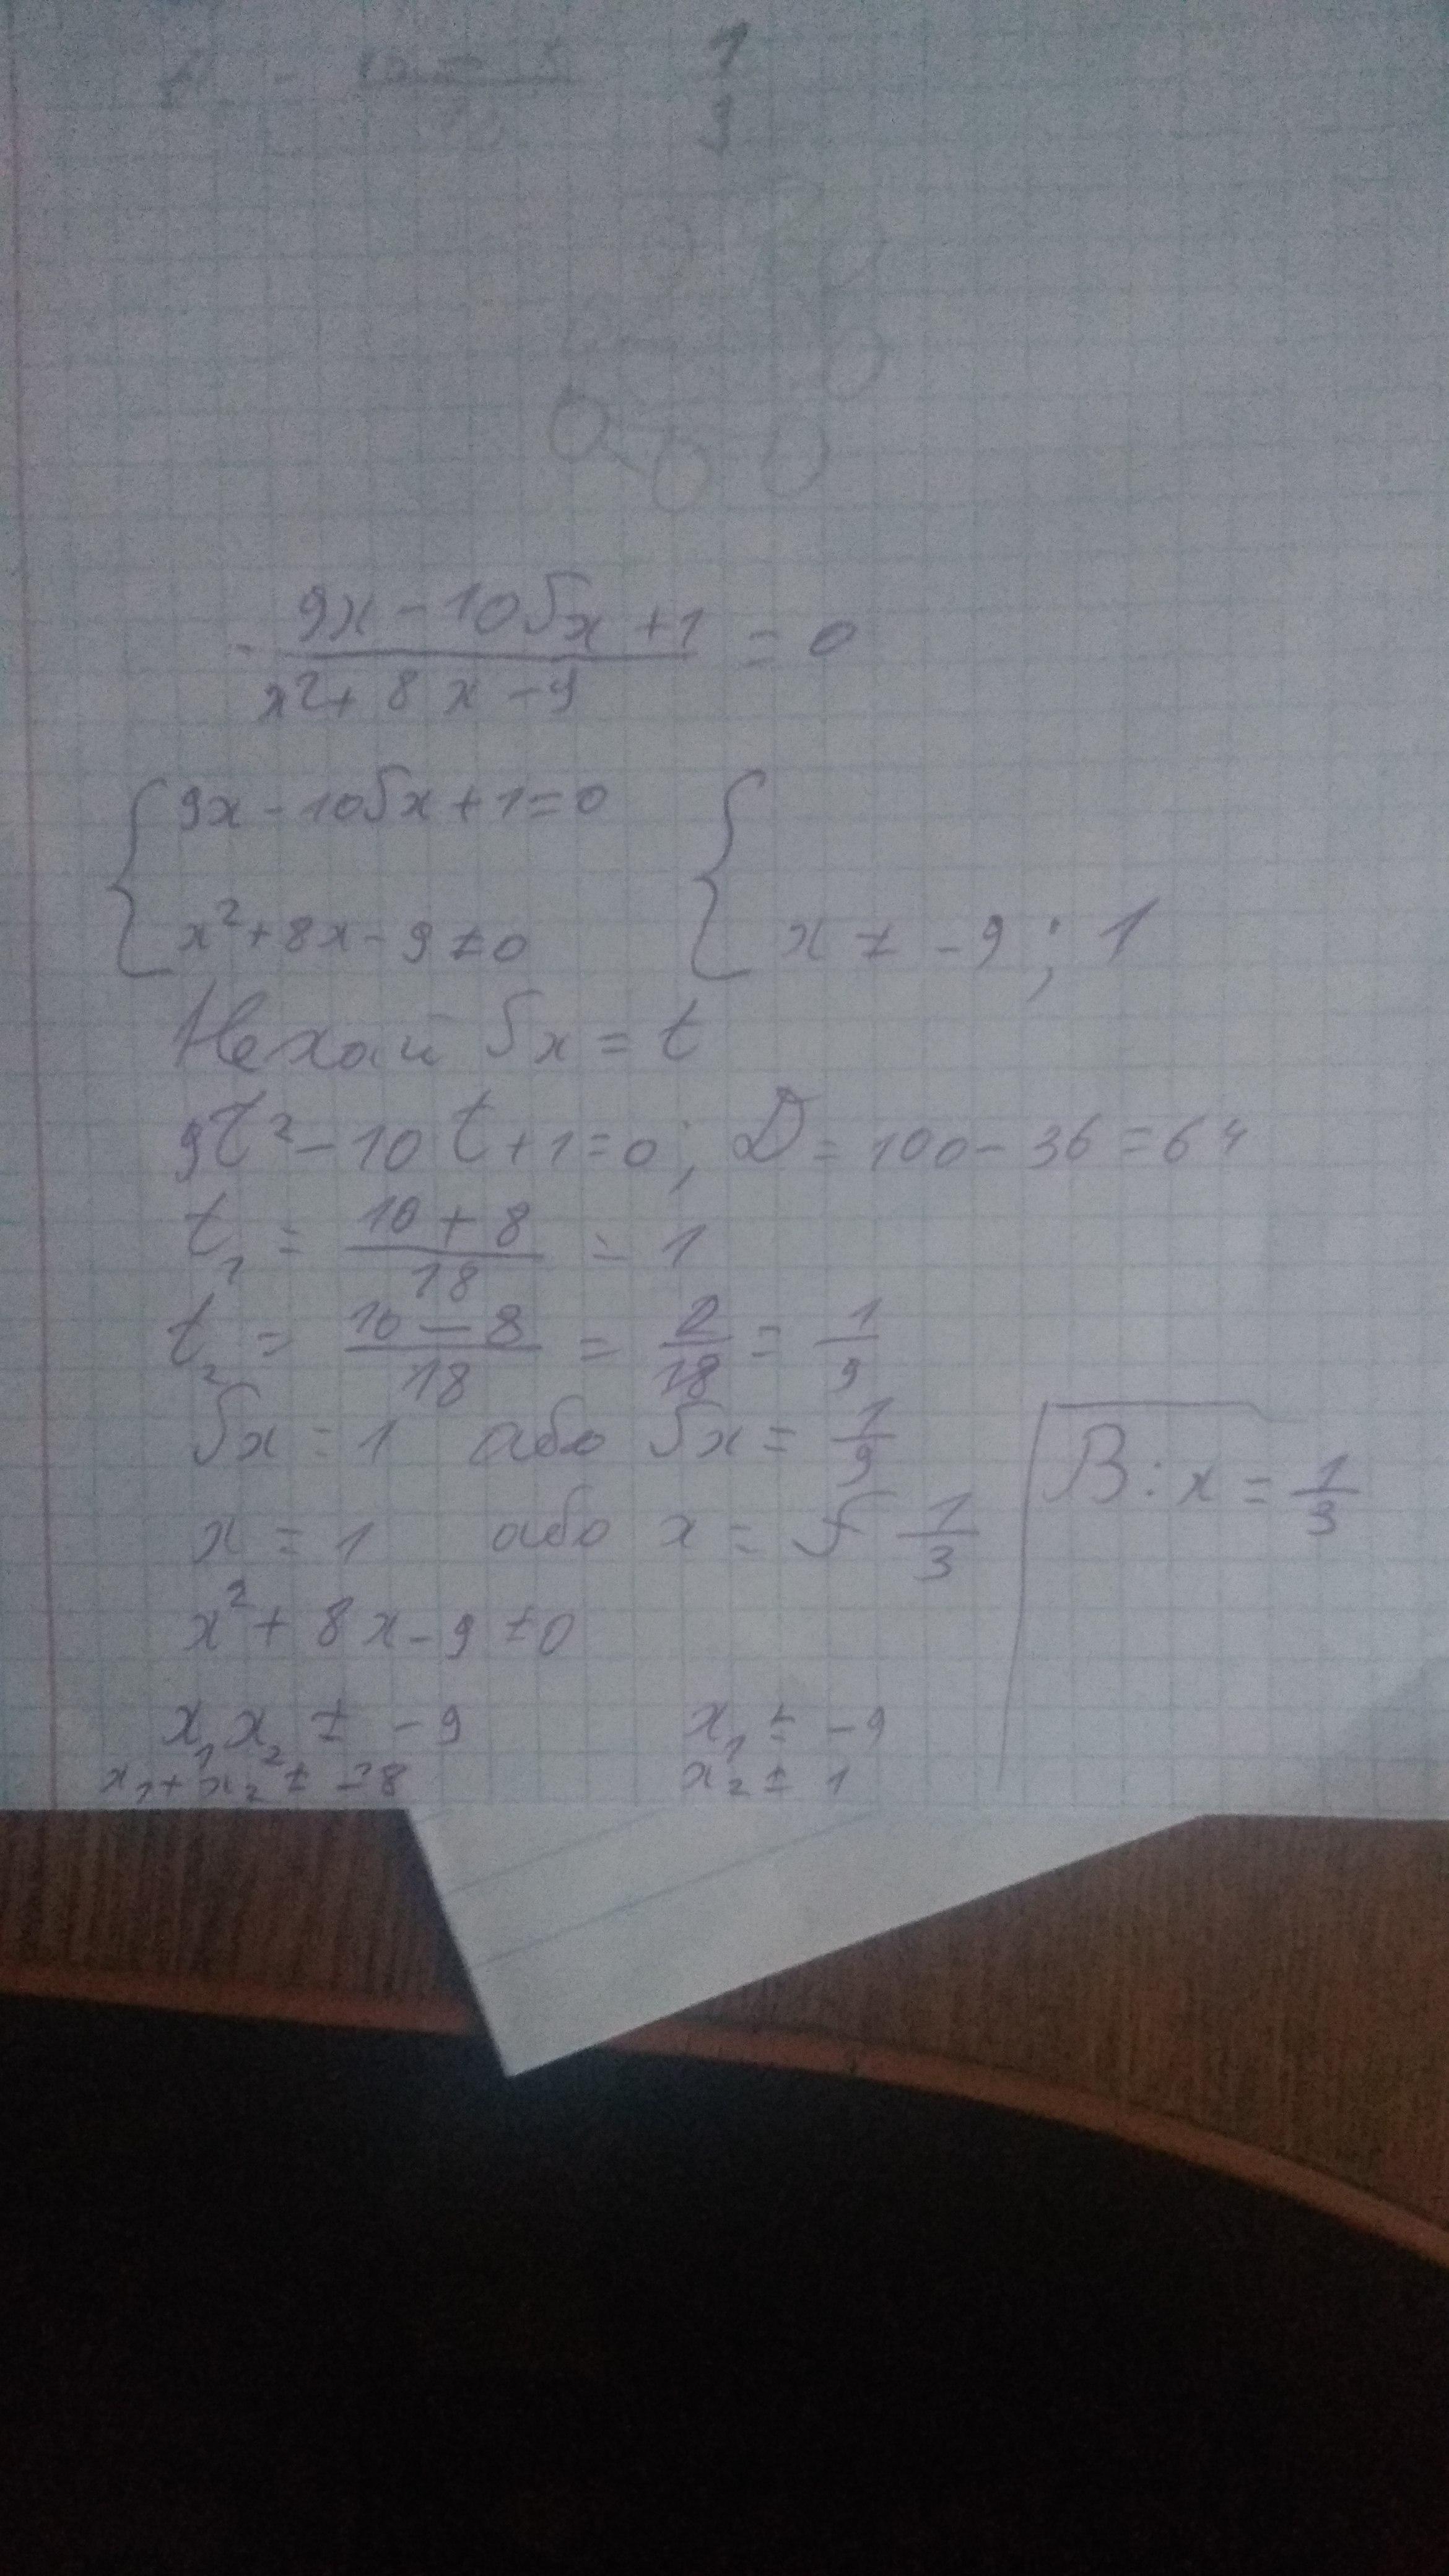 1
3
9x - 10√x + 1 = 0
x² + 8x - 9
9x - 10√x + 1 = 0
x² + 8x - 9 ≠ 0 x ≠ -9 ; 1
Нехай √x = t
9t² - 10t + 1 = 0 ; D = 100 - 36 = 64
t₁ = 10 + 8 / 18 = 1
t₂ = 10 - 8 / 18 = 2/18 = 1/9
√x = 1 або √x = 1/9
x = 1 або x = 1/3
В: x = 1/3
x² + 8x - 9 ≠ 0
x₁x₂ ≠ -9 x₁ ≠ -9
x₁ + x₂ ≠ -8 x₂ ≠ 1